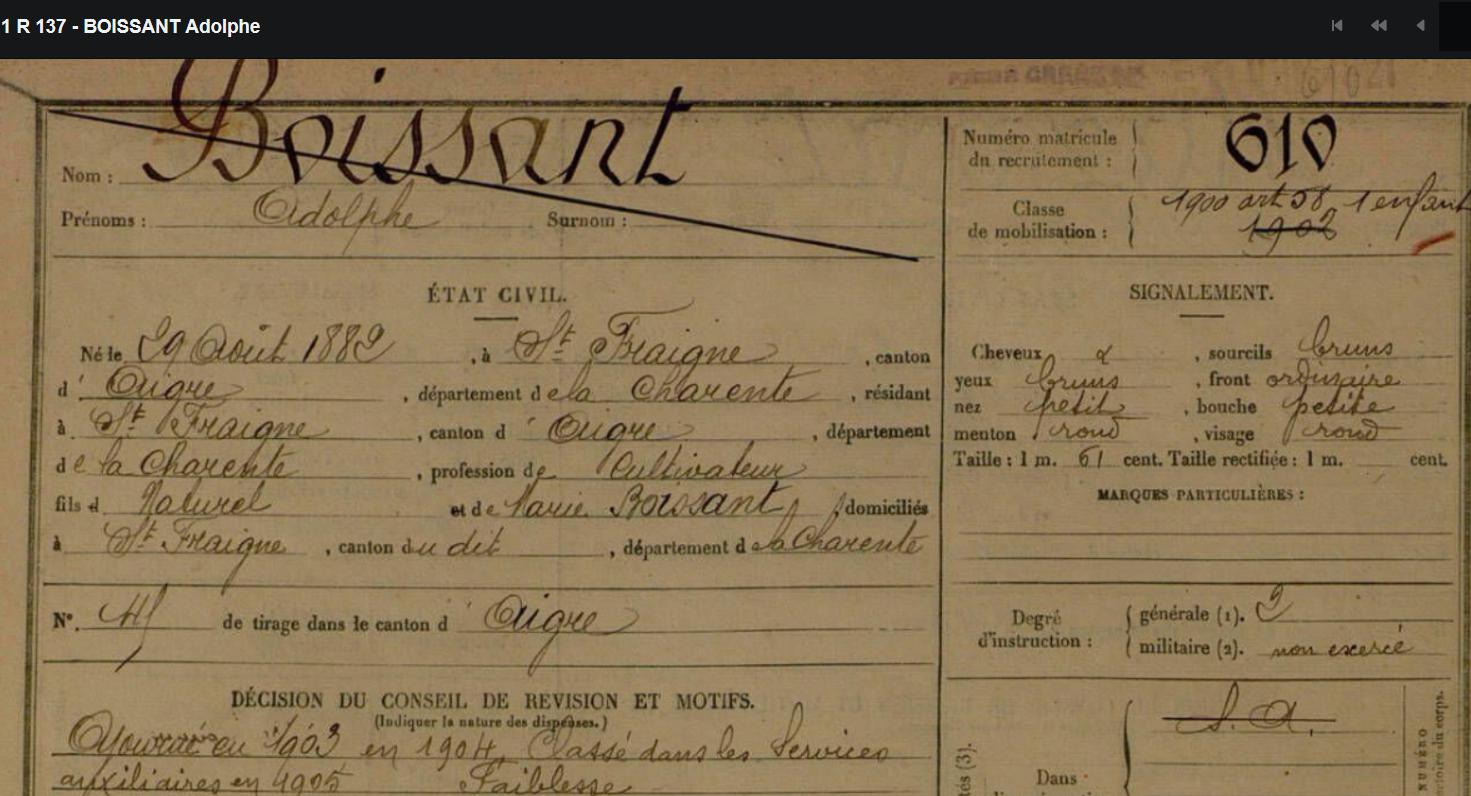 1 R 137 - BOISSANT Adolphe
Nom : Boissant
Prénoms : Adolphe Surnom :
ÉTAT CIVIL.
Né le 29 Août 1882, à St Fraigne, canton
d' Aigre, département de la Charente, résidant
à St Fraigne, canton d' Aigre, département
de la Charente, profession de Cultivateur
fils d Naturel et de Marie Boissant, domiciliés
à St Fraigne, canton du dit, département de la Charente
N°. de tirage dans le canton d' Aigre
DÉCISION DU CONSEIL DE REVISION ET MOTIFS.
(Indiquer la nature des dispenses.)
Ajourné en 1903 en 1904, Classé dans les Services
auxiliaires en 1905 Faiblesse
Numéro matricule
du recrutement : 610
Classe
de mobilisation : 1900 art 58, 1 enfant
1902
SIGNALEMENT.
Cheveux, sourcils bruns
yeux bruns, front ordinaire
nez petit, bouche petite
menton rond, visage rond
Taille : 1 m. 61 cent. Taille rectifiée : 1 m. cent.
MARQUES PARTICULIÈRES :
Degré
d'instruction :
générale (1). 2
militaire (2). non exercé
S. A.
Dans
NUMÉRO
du corps.